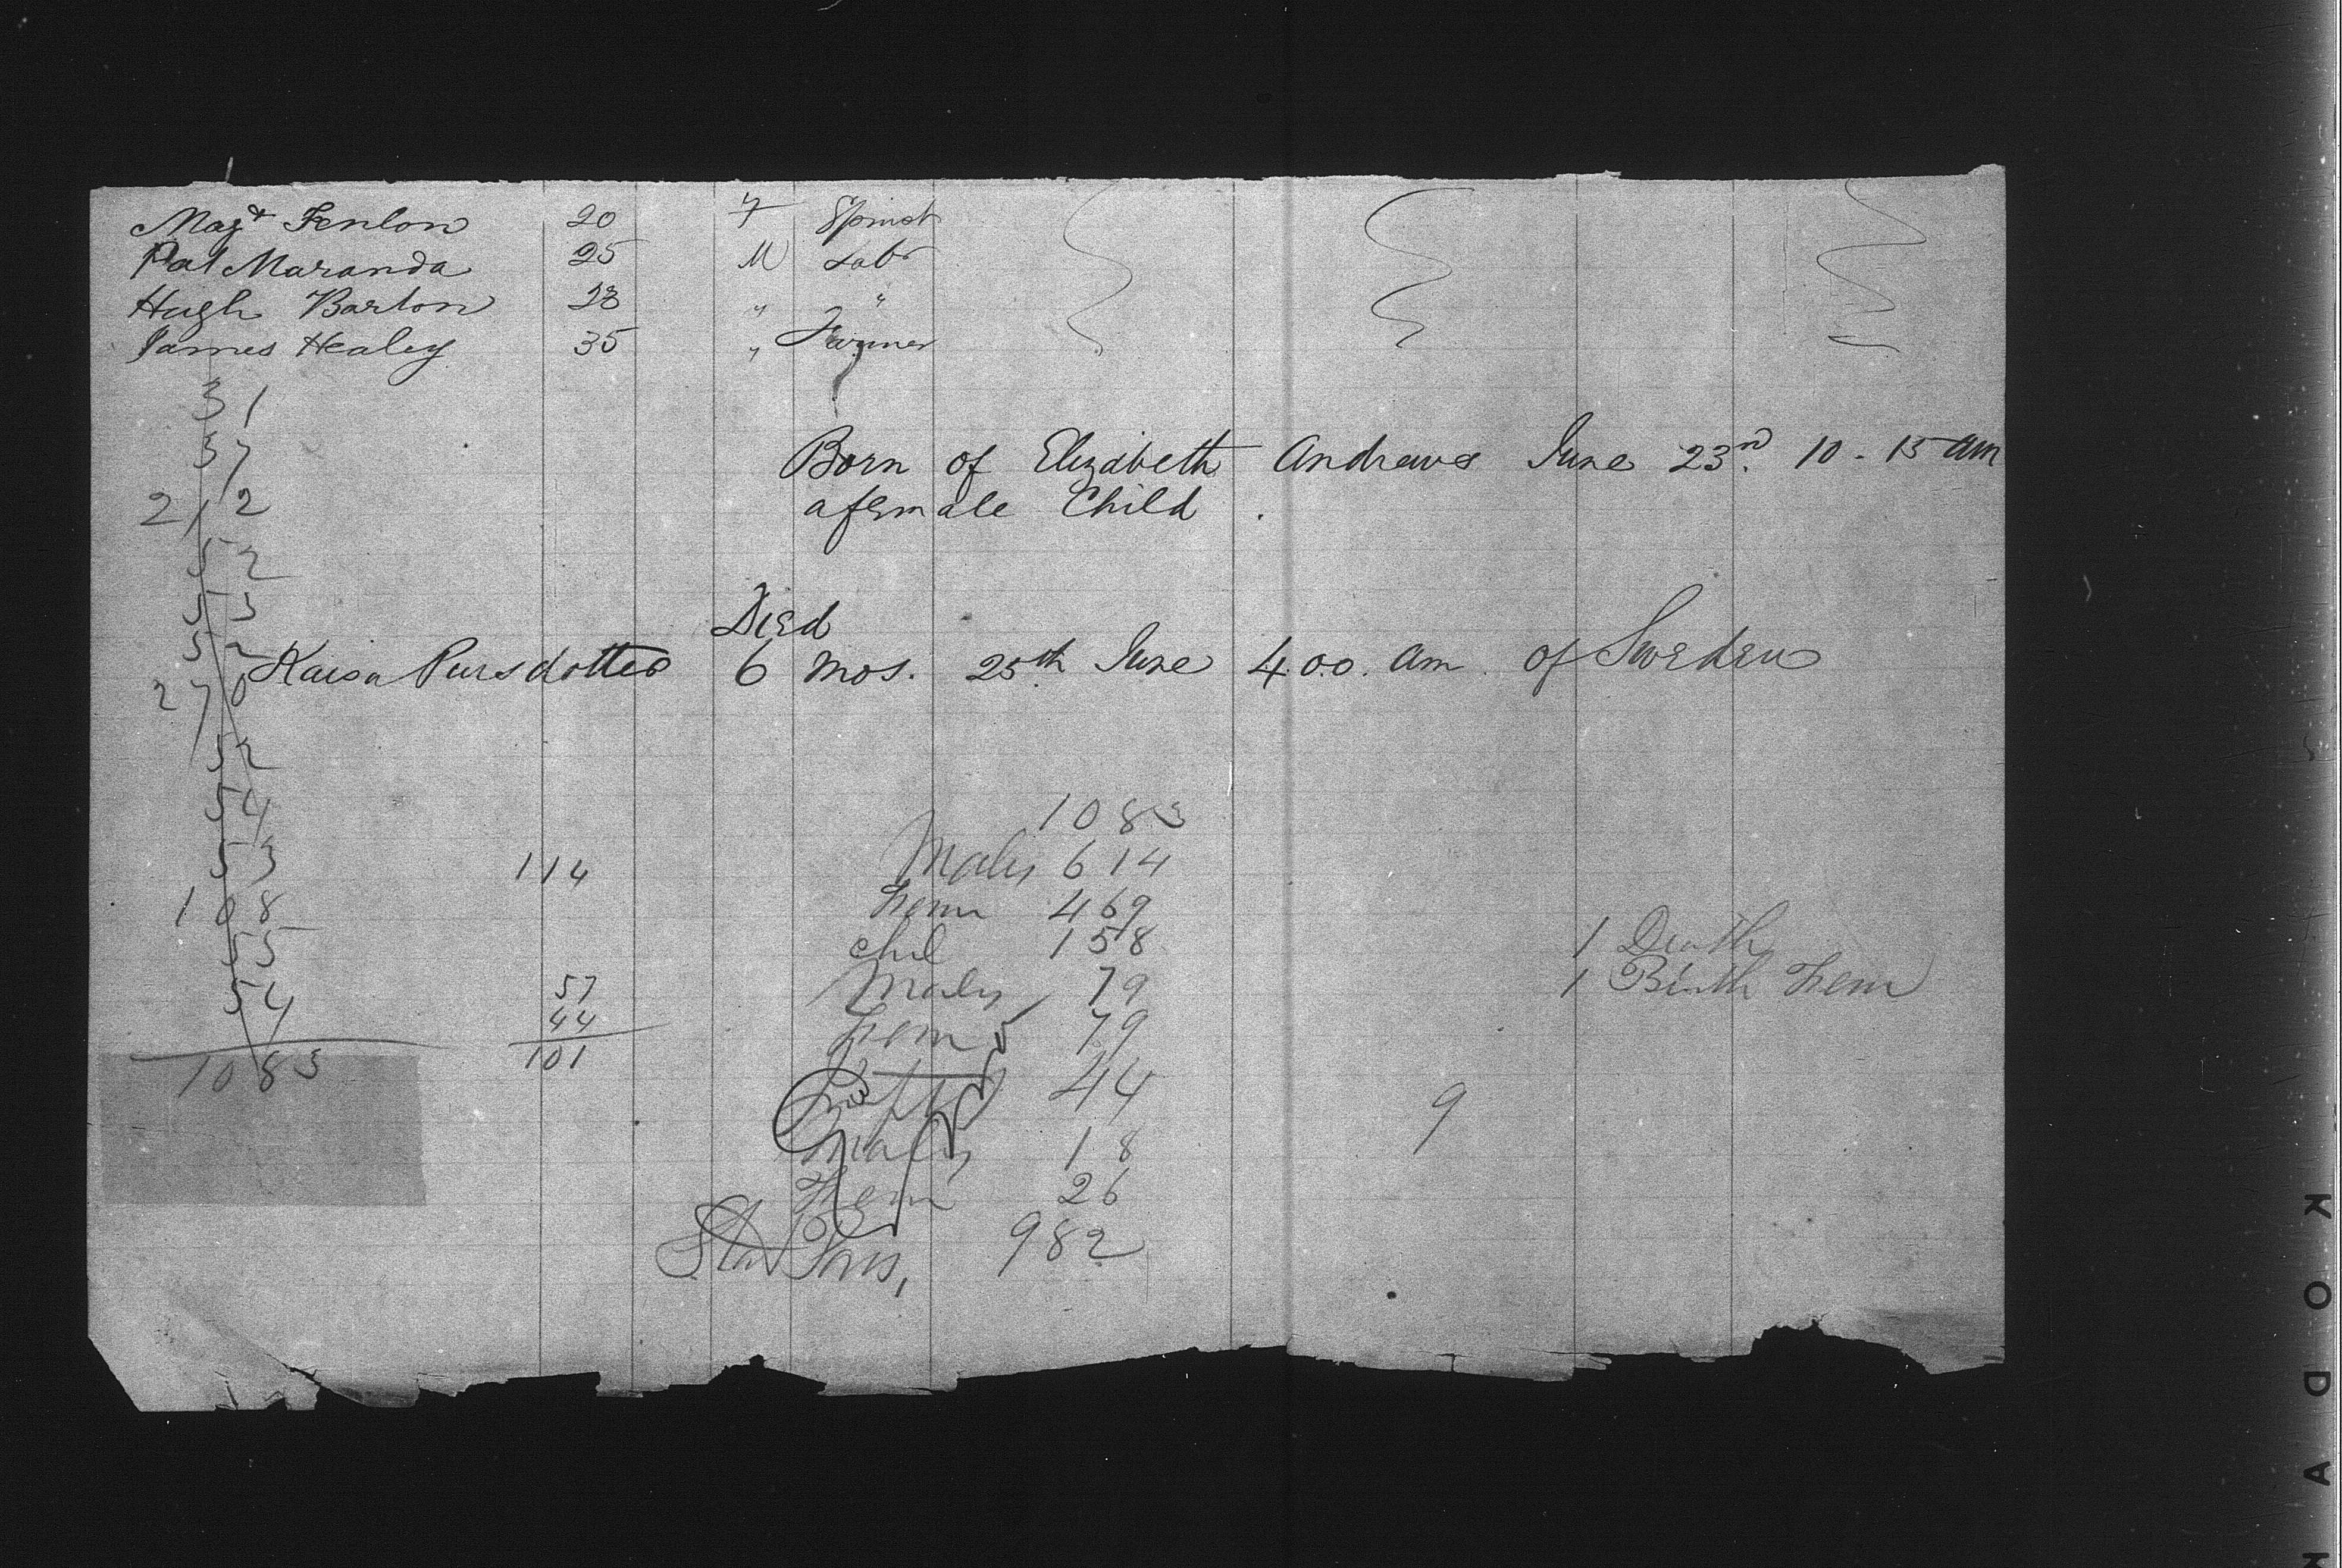 Magt Fenlon 20 F Spinst
Pat Maranda 25 M Labr
Hugh Barton 28 " "
James Healey 35 " Farmer
31
37
212
52
55
52
270
52
54
53
108
55
54
1083
Born of Elizabeth Andrews June 23rd. 10-15 am
a female Child.
Died
Kaisa Pursdotter 6 mos. 25th June 4.00. am. of Sweden
114
57
44
101
1083
Males 614
Fem 469
chil 158
Males 79
Fem 79
44
Males 18
Fem 26
982
1 Death
1 Birth Fem
9
KODAK